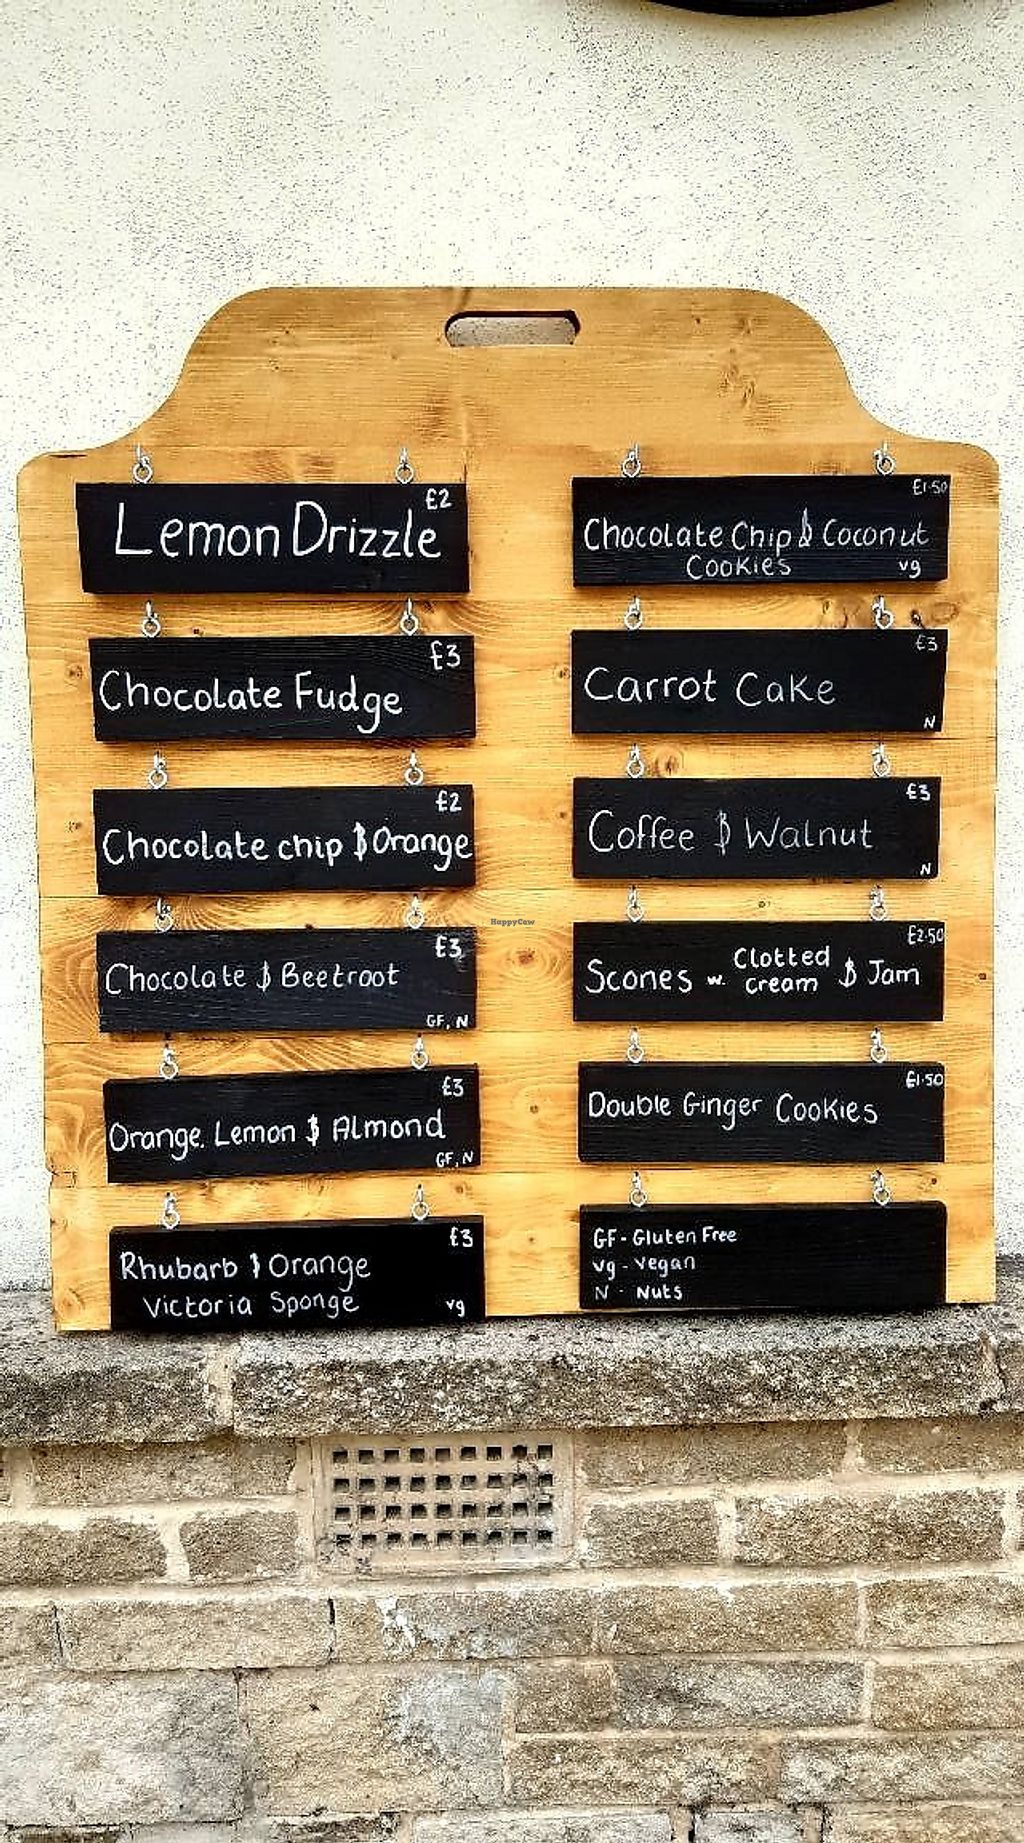 £2
Lemon Drizzle
£3
Chocolate Fudge
£2
Chocolate chip & Orange
£3
Chocolate & Beetroot
GF, N
£3
Orange. Lemon & Almond
GF, N
£3
Rhubarb & Orange
Victoria Sponge
vg
£1.50
Chocolate Chip & Coconut
Cookies
vg
£3
Carrot Cake
N
£3
Coffee & Walnut
N
£2.50
Scones w. Clotted cream & Jam
£1.50
Double Ginger Cookies
GF - Gluten Free
vg - vegan
N - Nuts
HappyCow